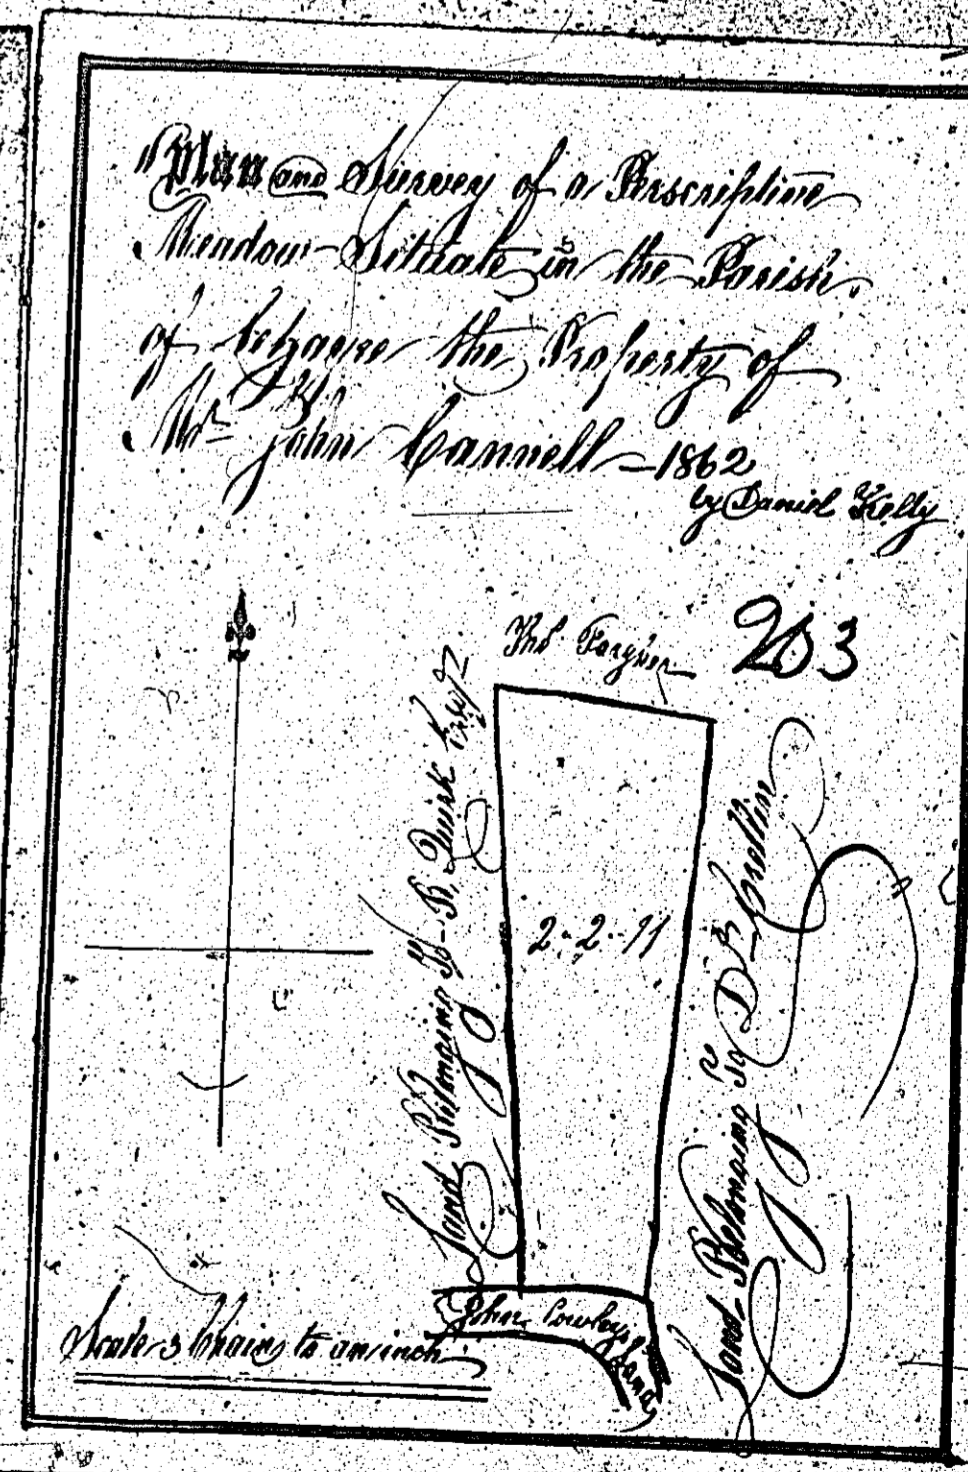 "Plan and Survey of a Prescriptive
Meadow Situate in the Parish
of Lezayre the Property of
Mr John Cannell – 1862
by Daniel Kelly
203
Thos
Land Belonging To R. Quirk Esqr
2 - 2 - 11
Land Belonging To D B
John Cowley's Land
Scale 3 Chains to an inch